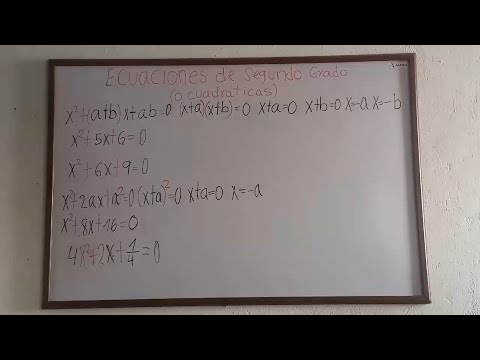 Ecuaciones de Segundo Grado
(o cuadráticas)
x²+(a+b)x+ab=0 (x+a)(x+b)=0 x+a=0 x+b=0 x=-a x=-b
x²+5x+6=0
x²+6x+9=0
x²+2ax+a²=0 (x+a)²=0 x+a=0 x=-a
x²+8x+16=0
4x²+2x+1/4=0